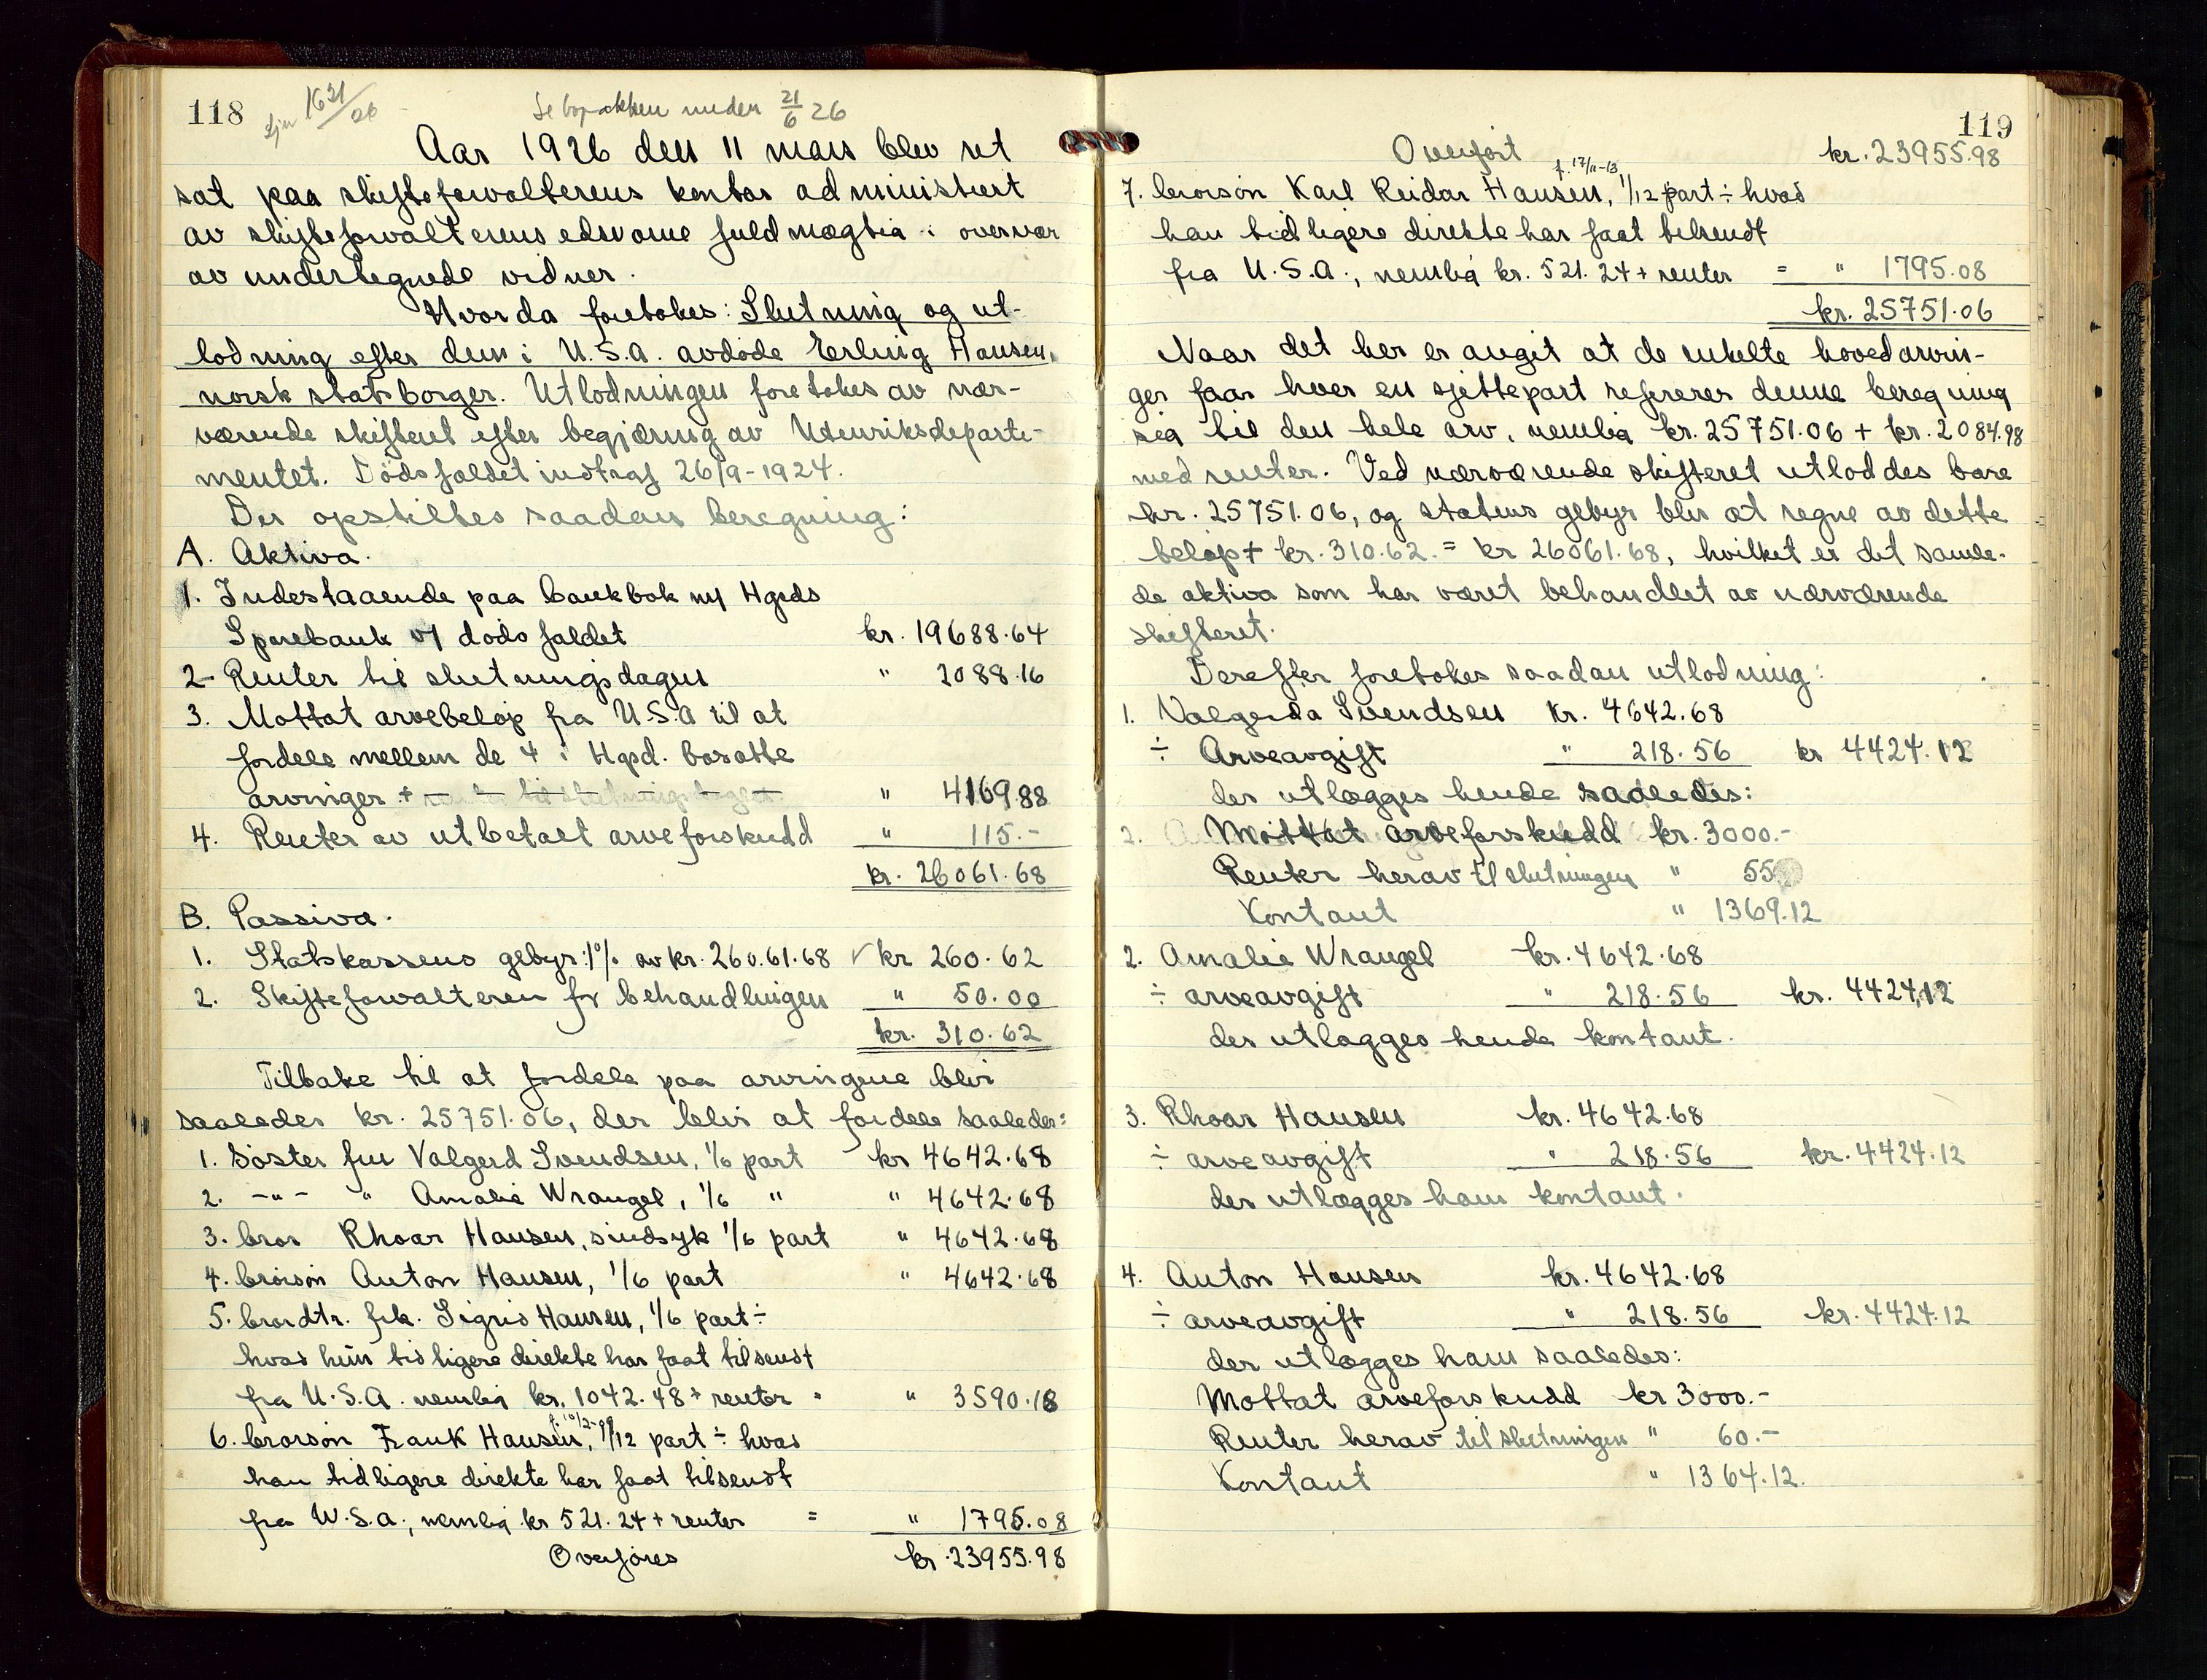 118
1621/26
Se bopakken under 21/6 26
Aar 1926 den 11 mars blev ret
sat paa skifteforvalterens kontor administrert
av skifteforvalterens edsvorne fuldmægtig i overvær
av undertegnede vidner.
Hvorda foretokes: Slutning og ut-
lodning efter den i U.S.A. avdøde Erling Hansen,
norsk statsborger. Utlodningen foretokes av nær-
værende skifteret efter begjæring av Utenriksdeparte-
mentet. Dødsfaldet indtraf 26/9-1924.
Der opstilles saadan beregning:
A. Aktiva.
1. Indestaaende paa bankbok m/ Hgsds
Sparebank v/ dødsfaldet kr. 19688.64
2. Renter til slutningsdagen " 2088.16
3. Mottat arvebeløp fra U.S.A til at
fordele mellem de 4 i Hgsd. bosatte
arvinger + renter til slutningsdagen " 4169.88
4. Renter av utbetalt arveforskudd " 115.-
kr. 26061.68
B. Passiva.
1. Statskassens gebyr: 1% av kr. 260.61.68 ✓ kr 260.62
2. Skifteforvalteren for behandlingen " 50.00
kr. 310.62
Tilbake til at fordele paa arvingene blir
saaledes kr. 25751.06, der blir at fordele saaledes:
1. Søster fru Valgerd Svendsen, 1/6 part kr 4642.68
2. -"- " Amalie Wrangel, 1/6 " " 4642.68
3. bror Rhoar Hansen, sindsyk 1/6 part " 4642.68
4. brorsøn Anton Hansen, 1/6 part " 4642.68
5. brordtr. frk. Sigrid Hansen, 1/6 part ÷
hvad hun tidligere direkte har faat tilsendt
fra U.S.A. nemlig kr. 1042.48 + renter = " 3590.18
6. brorsøn Frank Hansen, 1/12 part ÷ hvad
han tidligere direkte har faat tilsendt
fra U.S.A., nemlig kr 521.24 + renter = " 1795.08
Overføres kr. 23955.98
119
Overført kr. 23955.98
f. 17/11-13
7. brorsøn Karl Reidar Hansen, 1/12 part ÷ hvad
han tidligere direkte har faat tilsendt
fra U.S.A., nemlig kr. 521.24 + renter = " 1795.08
kr. 25751.06
Naar det her er angit at de enkelte hovedarvin-
ger faar hver en sjettepart refererer denne beregning
sig til den hele arv, nemlig kr. 25751.06 + kr. 2084.98
med renter. Ved nærværende skifteret utloddes bare
kr. 25751.06, og statens gebyr blir at regne av dette
beløp + kr. 310.62. = kr 26061.68, hvilket er det samle-
de aktiva som har været behandlet av nærværende
skifteret.
Derefter foretokes saadan utlodning:
1. Valgerda Svendsen kr. 4642.68
÷ Arveavgift " 218.56 kr 4424.12
der utlægges hende saaledes:
Mottat arveforskudd kr. 3000.-
Renter herav til slutningen " 55
Kontant " 1369.12
2. Amalie Wrangel kr. 4642.68
÷ arveavgift " 218.56 kr. 4424,12
der utlægges hende kontant.
3. Rhoar Hansen kr. 4642.68
÷ arveavgift " 218.56 kr. 4424.12
der utlægges ham kontant.
4. Anton Hansen kr. 4642.68
÷ arveavgift " 218.56 kr. 4424.12
der utlægges ham saaledes:
Mottat arveforskudd kr 3000.-
Renter herav til slutningen " 60.-
Kontant " 1364.12.